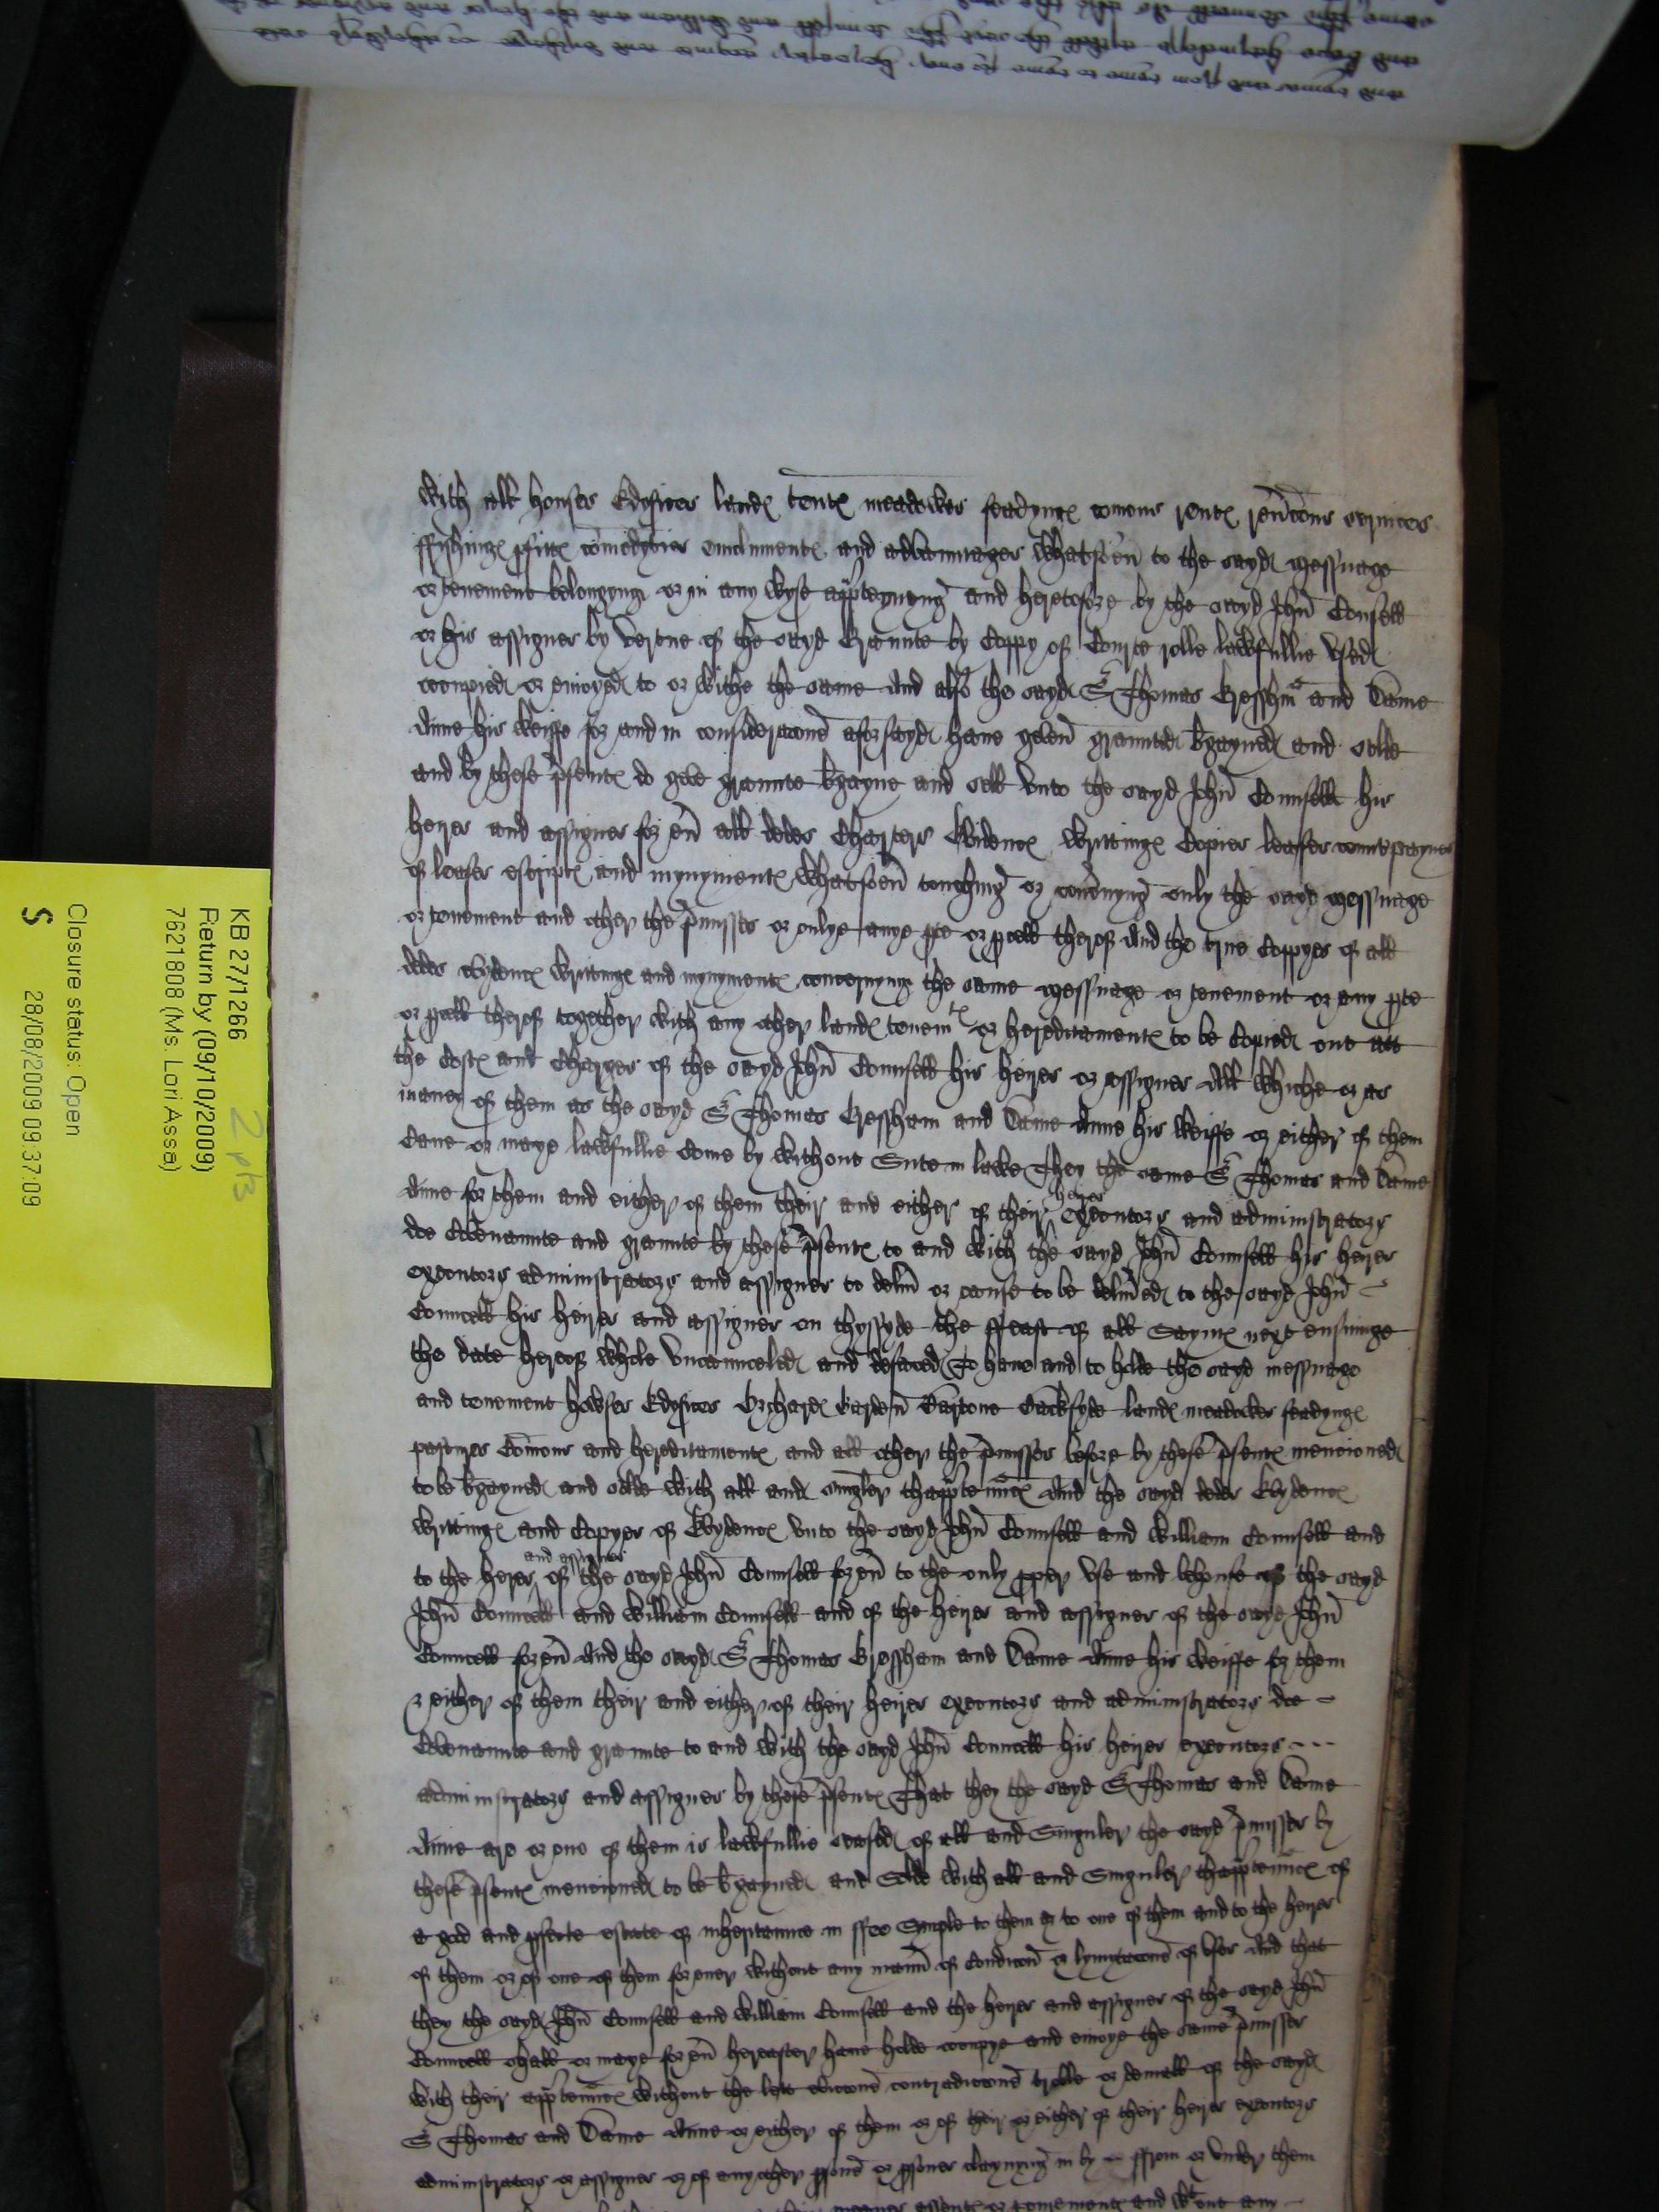 with all houses Edyfices land tent meadowes feadyng comons rent revcons services
ffishing pfitt comodyties emolument and advauntages whatsoev to the sayd messuage
or tenement belongyng or in any wyse appteynyng and heretofore by the sayd John Counsell
or his assignes by vertue of the sayd Graunte by Coppy of Courte rolle lawfullie used
occupied or enioyed to or withe the same And also the sayd Sr Thomas Gressham and Dame
Anne his weiffe for and in consideracon aforsayd have geven graunted bgayned and solde
and by these psent do geve graunte bgayne and sell unto the sayd John Counsell his
heyres and assignes for ev all dedes Charters Evidenc writting Copies leases countpaynes
of leases escript and mynyment whatsoev touching or concnyng only the sayd messuage
or tenement and other the pmisses or onlye anye pte or pcell therof And the true Coppyes of all
dedes evydenc writting and mynyment concernyng the same messuage or tenement or any pte
or pcell therof together with any other land tenemt or hereditament to be Copied out att
the Cost and Charges of the sayd John Counsell his heyres or assignes All whiche or as
many of them as the sayd Sr Thomas Gressham and Dame Anne his weiffe or either of them
Cane or maye lawfullie Come by without Sute in lawe They the same Sr Thomas and Dame
Anne for them and either of them their and either of their heyres executors and administrators
doe Covenaunte and graunte by these psent to and with the sayd John Counsell his heyres
executors administrators and assignes to delivr or cause to be delived to the sayd John
Councell his heyres and assignes on thyssyde the ffeast of all Saynt next ensuinge
the date hereof whole uncaunceled and defaced To have and to holde the sayd messuage
and tenement howses Edyfices Orchard Garden Bartone Backsyde land meadowes feadyng
pastures Comons and hereditament and all other the pmisses before by these psent mencioned
to be bgayned and solde with all and singler thapptennc And the sayd dedes Evydenc
writting and Copyes of Evydenc unto the sayd John Counsell and William Counsell and
to the heres and assignes of the sayd John Counsell for ev to the only pper use and behoufe of the sayd
John Councell and William Counsell and of the heyres and assignes of the sayd John
Councell for ev And the sayd Sr Thomas Gressham and Dame Anne his weiffe for them
& either of them their and either of their heyres executors and administrators doe
Covenaunte and graunte to and with the sayd John Councell his heyres executors
administrators and assignes by these psent That they the sayd Sr Thomas and Dame
Anne are or one of them is lawfullie seased of all and Singuler the sayd pmisses by
these psent mencioned to be bgayned and Solde with all and Singuler thapptennc of
a good and pfecte estate of inheritaunce in ffee Simple to them or to one of them and to the heyres
of them or of one of them for ever without any mann of Condicon or lymytacone of uses And that
they the sayd John Counsell and William Counsell and the heyres and assignes of the sayd John
Councell shall or maye for ev hereafter have holde occupye and enioye the same pmisses
with their apptennc without the lett eviccone contradiccone troble or deniall of the sayd
Sr Thomas and Dame Anne or either of them or of their or either of their heyres executors
administrators or assignes or of any other psone or psones claymyng in by ffrom or under them
KB 27/1266
2 pts
Return by (09/10/2009)
7621808 (Ms. Lori Assa)
Closure status: Open
S 28/08/2009 09:37:09